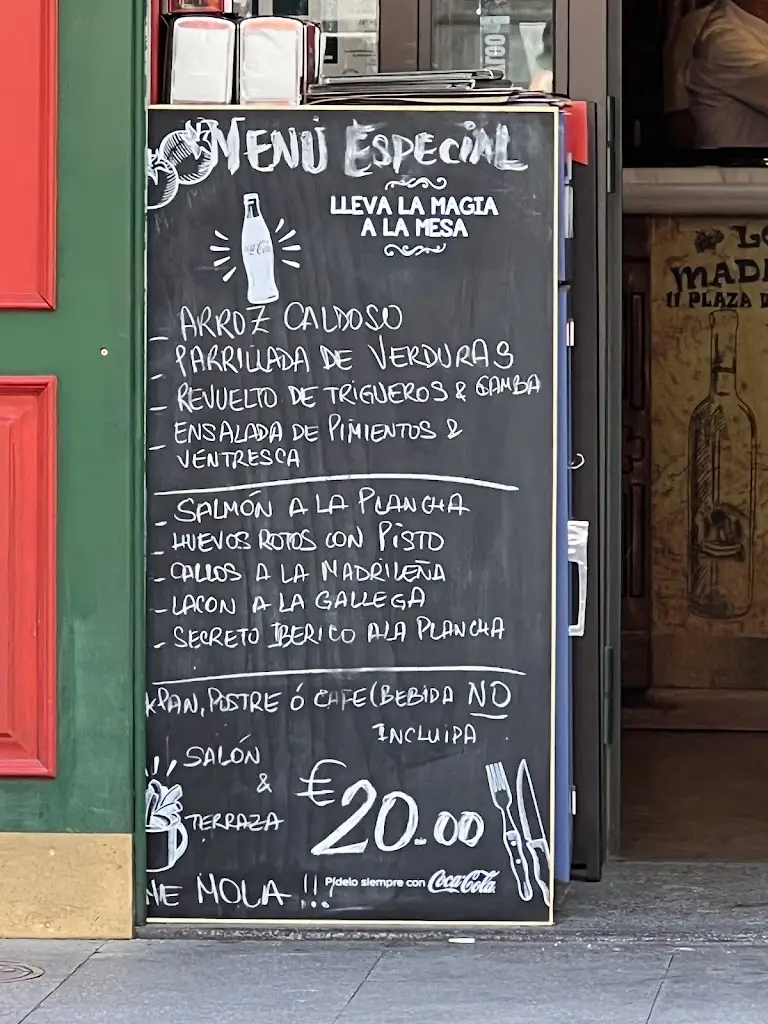 MENÚ ESPECIAL
LLEVA LA MAGIA
A LA MESA
Coca-Cola
- ARROZ CALDOSO
- PARRILLADA DE VERDURAS
- REVUELTO DE TRIGUEROS & GAMBA
- ENSALADA DE PIMIENTOS &
VENTRESCA
- SALMÓN A LA PLANCHA
- HUEVOS ROTOS CON PISTO
- CALLOS A LA MADRILEÑA
- LACON A LA GALLEGA
- SECRETO IBERICO A LA PLANCHA
*PAN, POSTRE Ó CAFE (BEBIDA NO
INCLUIDA
SALÓN
&
TERRAZA
€20.00
ME MOLA !!!
Pídelo siempre con Coca-Cola
MAD
11 PLAZA D